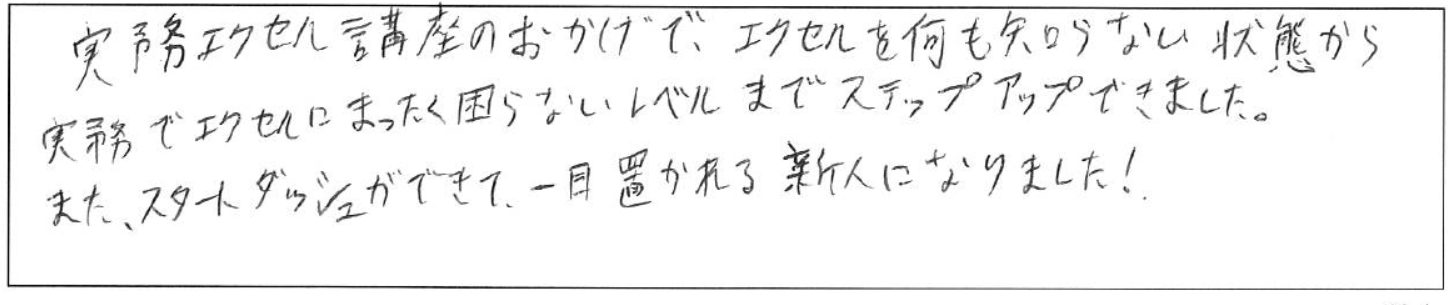 実務エクセル講座のおかげで、エクセルを何も知らない状態から
実務でエクセルにまったく困らないレベルまでステップアップできました。
また、スタートダッシュができて、一目置かれる新人になりました!